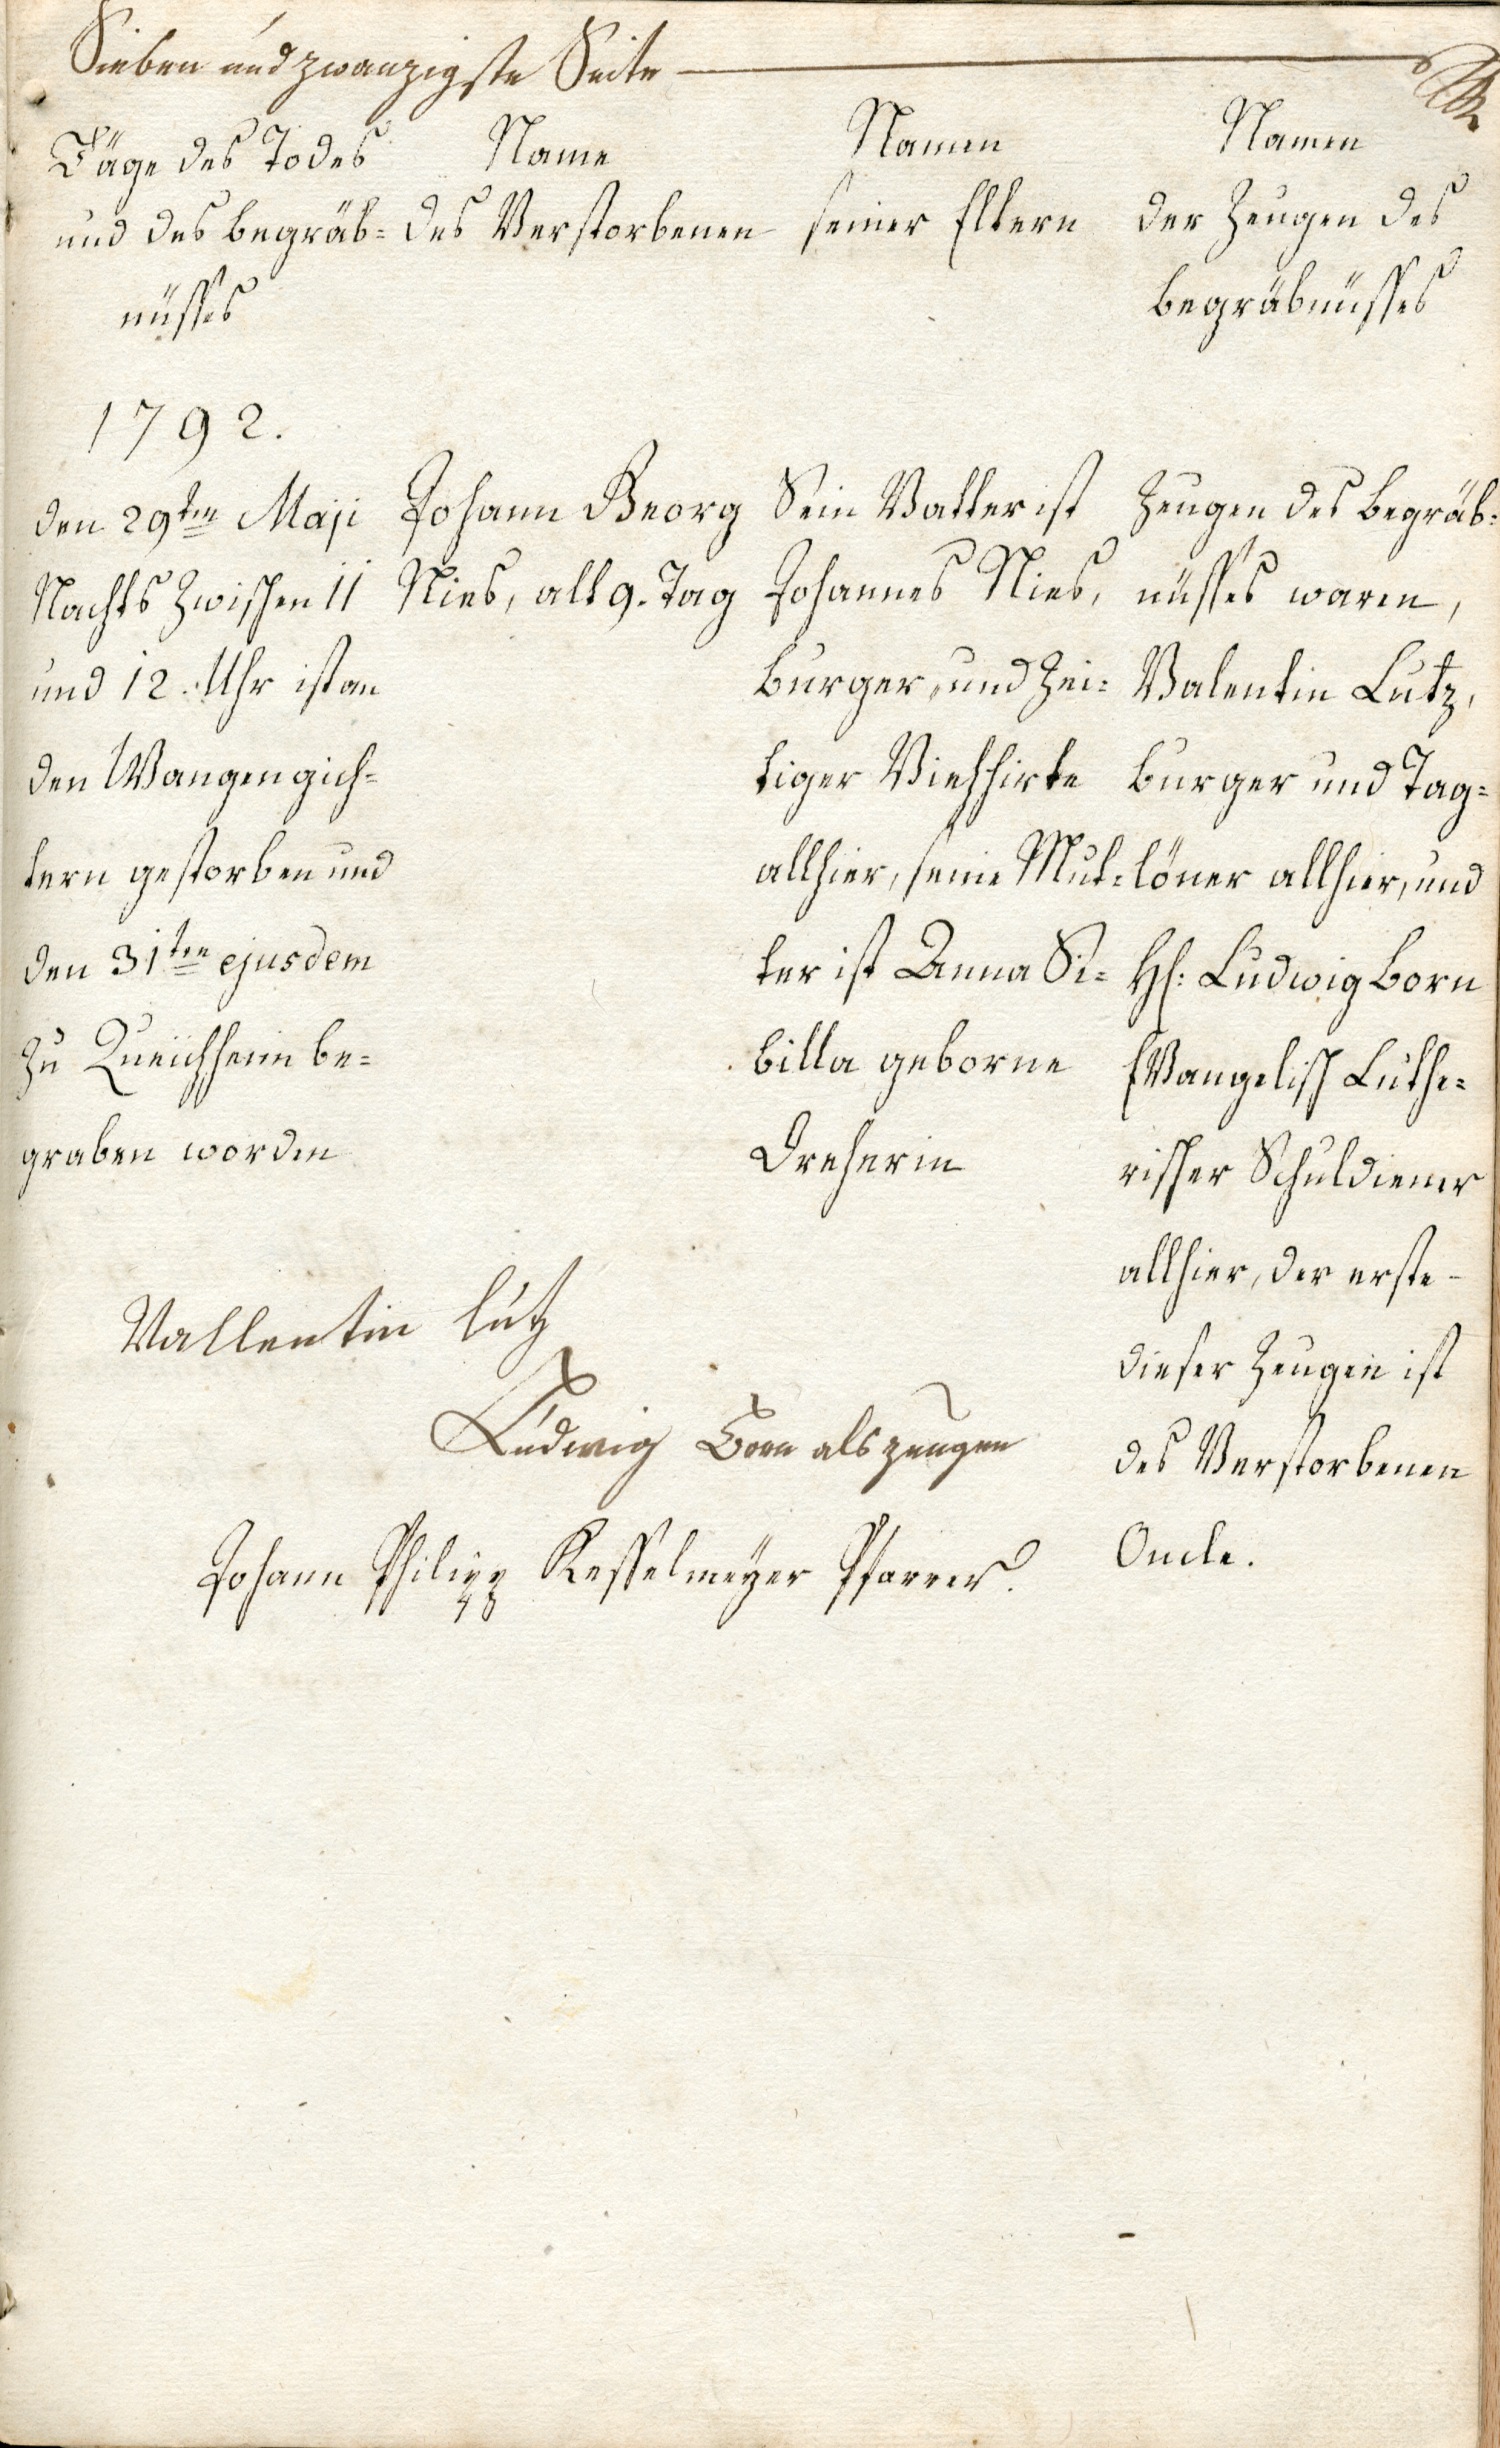 Sieben und zwanzigste Seite
Täge des Todes
und des begräb=
nüsses
Name
des Verstorbenen
Namen
seiner Eltern
Namen
der Zeugen des
begräbnüsses
1792.
den 29ten Maji
Nachts zwischen 11
und 12. Uhr ist an
den Wangengich=
tern gestorben und
den 31ten ejusdem
zu Queichheim be=
graben worden
Johann Georg
Nies, alt 9. Tag
Sein Vatter ist
Johannes Nies,
burger, und Zei=
tiger Viehhirte
allhier, seine Mut=
ter ist Anna Si=
billa geborne
Dreherin
Zeugen des begräb=
nüsses waren,
Valentin Lutz,
burger und Tag=
löner allhier, und
H: Ludwig born
EVangelisch Luthe=
rischer Schuldiener
allhier, der erste
dieser Zeugen ist
des Verstorbenen
Oncle.
Vallentin lutz
Ludwig Born als zeugen
Johann Philipp Kesselmeÿer Pfarrer.